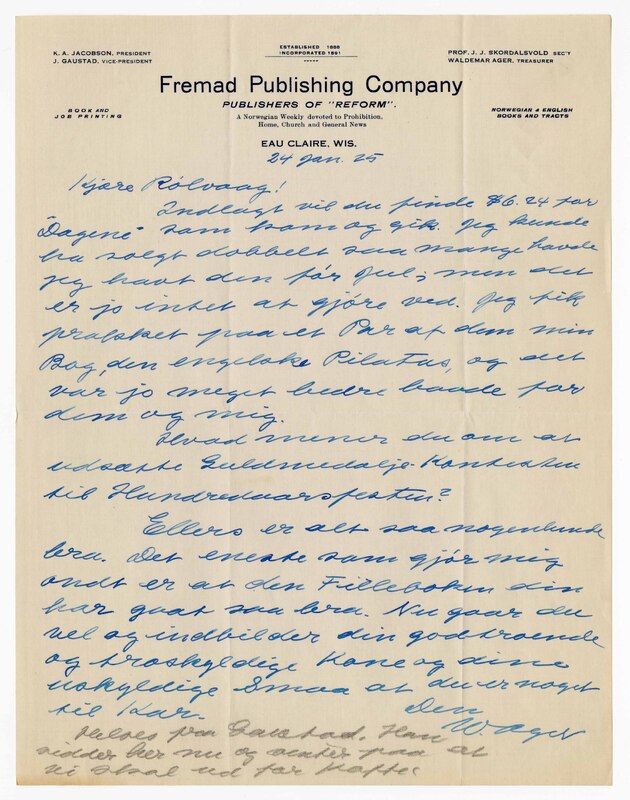 K. A. JACOBSON, PRESIDENT
J. GAUSTAD, VICE-PRESIDENT
ESTABLISHED 1888
INCORPORATED 1891
PROF. J. J. SKORDALSVOLD SEC'Y
WALDEMAR AGER, TREASURER
Fremad Publishing Company
PUBLISHERS OF "REFORM".
BOOK AND
JOB PRINTING
A Norwegian Weekly devoted to Prohibition,
Home, Church and General News
NORWEGIAN & ENGLISH
BOOKS AND TRACTS
EAU CLAIRE, WIS.
24 Jan. 25
Kjære Rølvaag!
Indlagt vil du finde $6.24 for
"Dagene" som kom og gik. Jeg kunde
ha solgt dobbelt saa mange havde
jeg havt den før Jul; men det
er jo intet at gjøre ved. Jeg fik
praksket paa et Par af dem min
Bog, den engelske Pilatus, og det
var jo meget bedre baade for
dem og mig.
Hvad mener du om at
udsætte Guldmedalje-Kontesten
til Hundredaarsfesten?
Ellers er alt saa nogenlunde
bra. Det eneste som gjør mig
ondt er at den Filleboken din
har gaat saa bra. Nu gaar du
vel og indbilder din godtroende
og troskyldige Kone og dine
uskyldige Smaa at du er noget
til Kar.
Den
W. Ager
Helses fra Gaustad. Han
sidder her nu og venter paa at
vi skal ud for Kaffe.